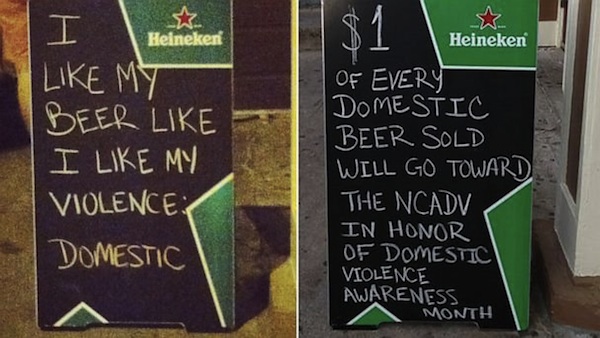 Heineken
I
LIKE MY
BEER LIKE
I LIKE MY
VIOLENCE:
DOMESTIC
Heineken
$1
OF EVERY
DOMESTIC
BEER SOLD
WILL GO TOWARD
THE NCADV
IN HONOR
OF DOMESTIC
VIOLENCE
AWARENESS
MONTH